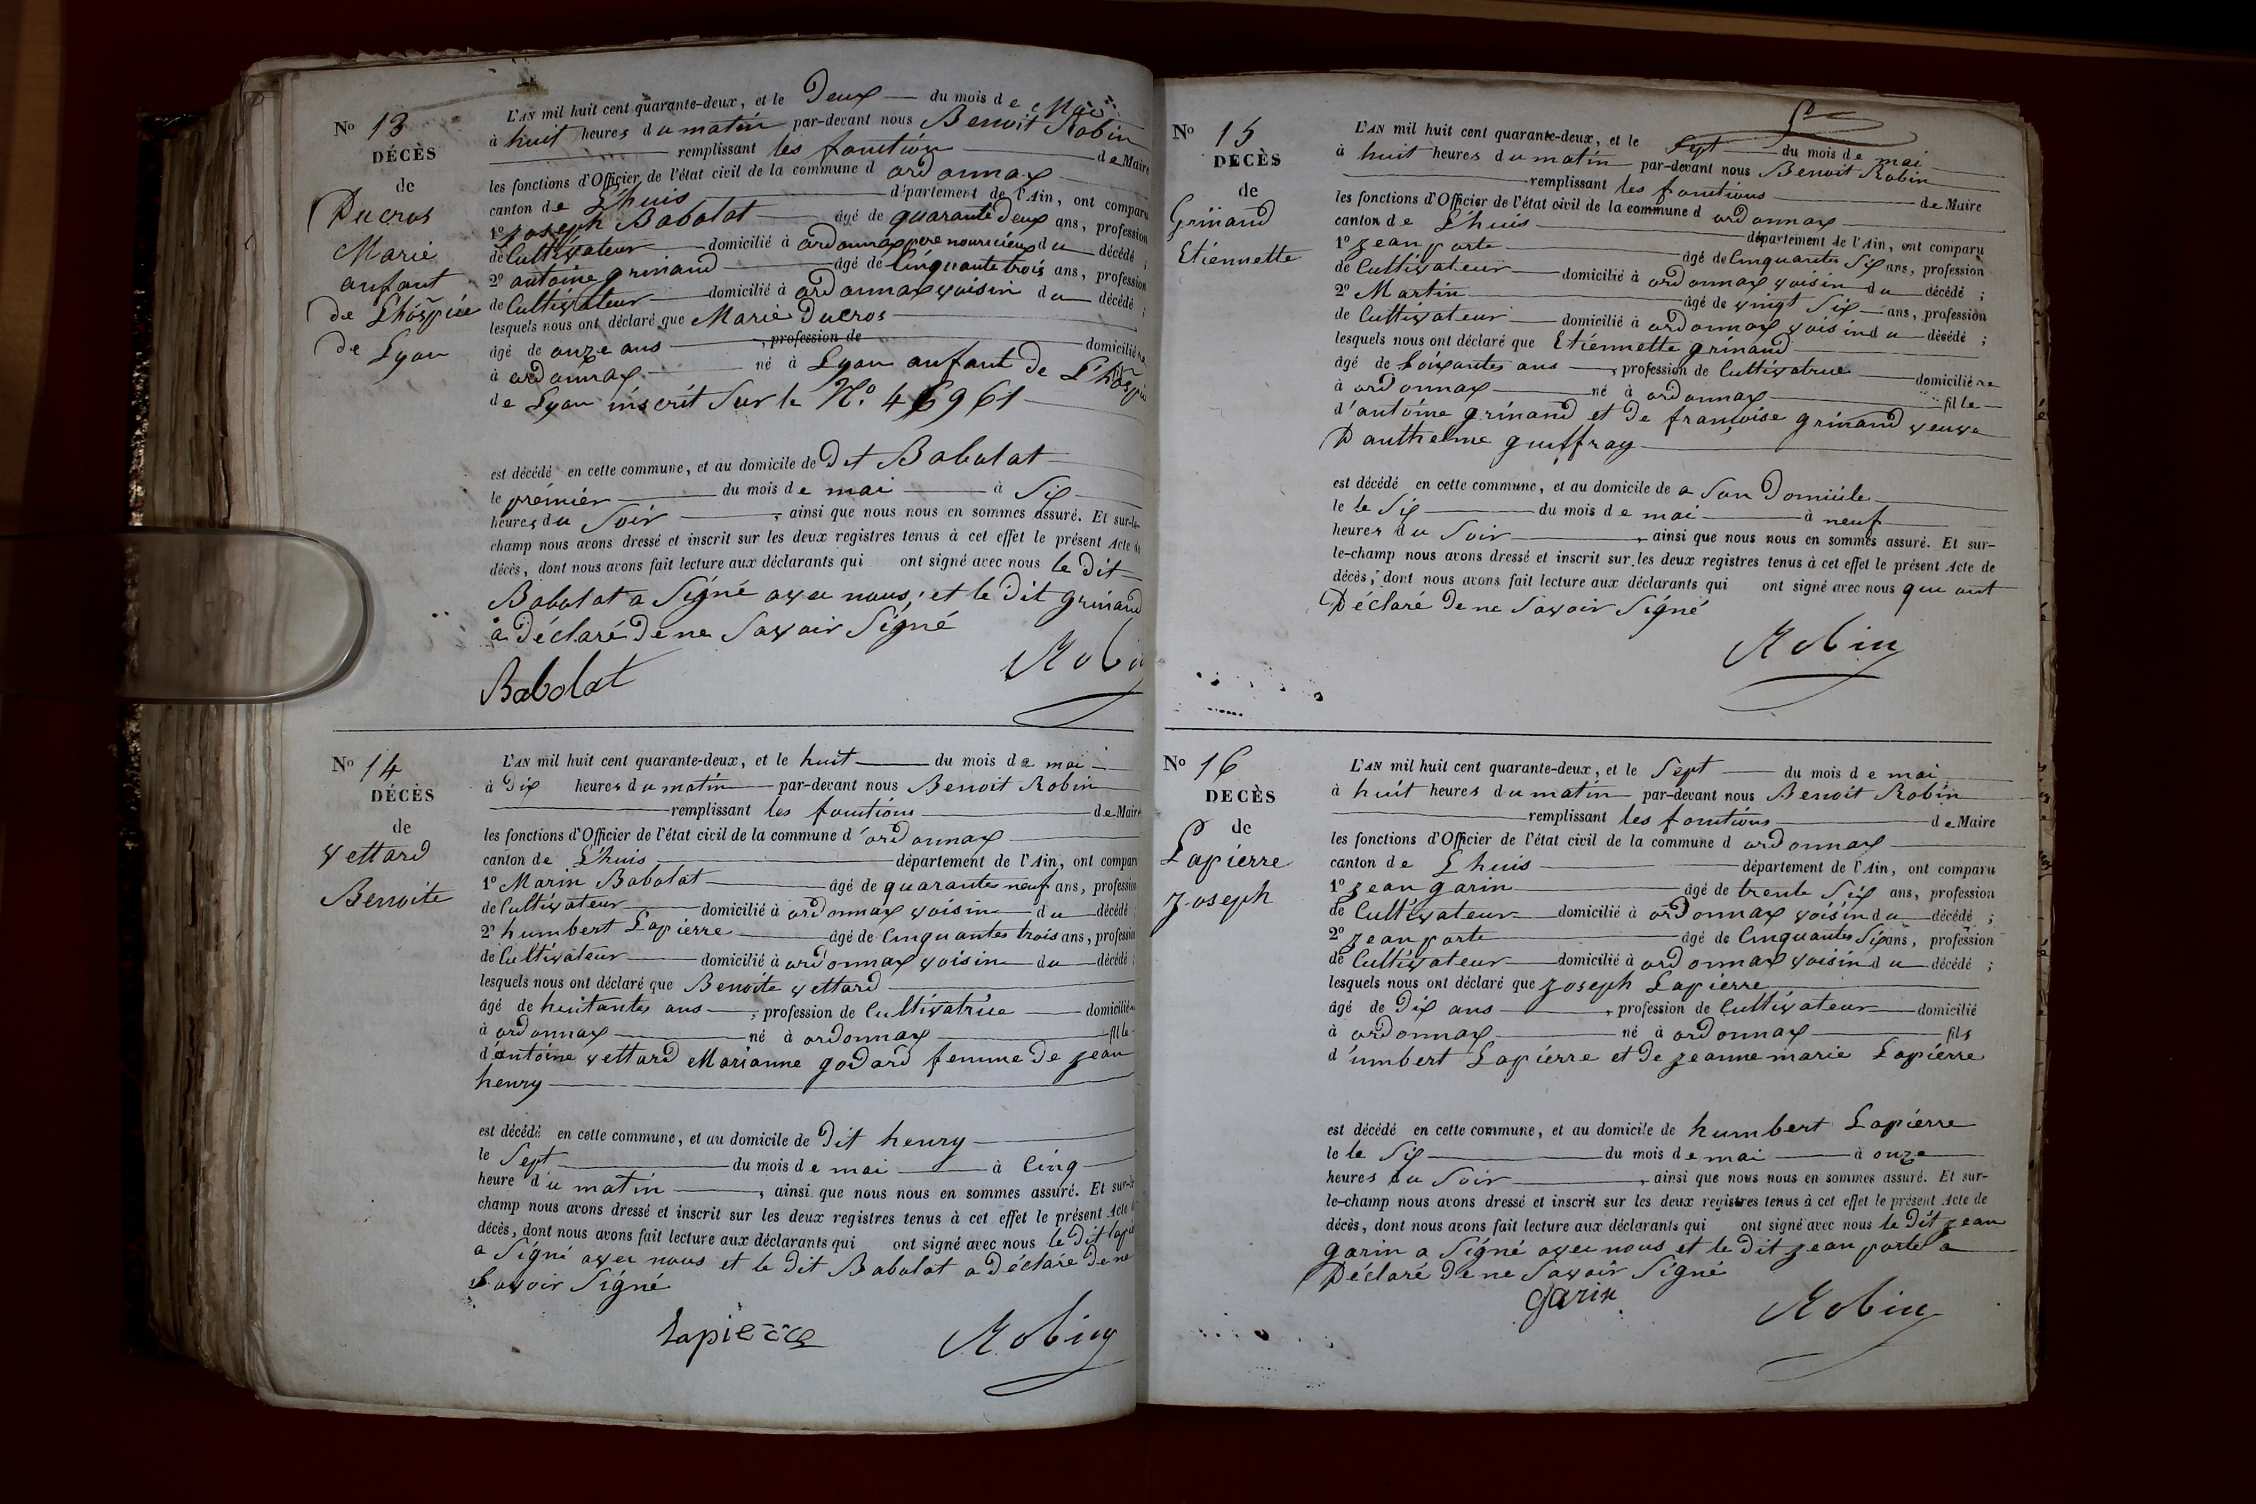 No 13
DÉCÈS
de
Ducros
Marie
anfant
de L'hospice
de Lyon
L'AN mil huit cent quarante-deux, et le Deux du mois de Mai
à huit heures du matin par-devant nous Benoit Robin
remplissant les fonction de Maire
les fonctions d'Officier de l'état civil de la commune d ordonnax
canton de L'huis département de l'Ain, ont comparu
1o Joseph Babolat âgé de quarante Deux ans, profession
de Cultivateur domicilié à ordonnax pere nourricieux du décédé ;
2o antoine grinand âgé de Cinquante trois ans, profession
de Cultivateur domicilié à ordonnax voisin du décédé ;
lesquels nous ont déclaré que Marie Ducros
âgé de onze ans , profession de domicilié
à ordonnax né à Lyon anfant de L'hospice
de Lyon inscrit Sur le No 46961
est décédé en cette commune, et au domicile de Dit Babolat
le premier du mois de mai à Six
heures du Soir , ainsi que nous nous en sommes assuré. Et sur-le-
champ nous avons dressé et inscrit sur les deux registres tenus à cet effet le présent Acte de
décès, dont nous avons fait lecture aux déclarants qui ont signé avec nous le dit
Babolat a Signé avec nous, et le Dit grinand
a Déclaré De ne Savoir Signé
Babolat Robin
No 14
DÉCÈS
de
vettard
Benoite
L'AN mil huit cent quarante-deux, et le huit du mois de mai
à Dix heures du matin par-devant nous Benoit Robin
remplissant les fonctions de Maire
les fonctions d'Officier de l'état civil de la commune d'ordonnax
canton de L'huis département de l'Ain, ont comparu
1o Marin Babolat âgé de quarante neuf ans, profession
de Cultivateur domicilié à ordonnax voisin du décédé
2o humbert Lapierre âgé de Cinquantes trois ans, profession
de Cultivateur domicilié à ordonnax voisin du décédé ;
lesquels nous ont déclaré que Benoite vettard
âgé de huitantes ans , profession de Cultivatrice domicilié
à ordonnax né à ordonnax fille
d'antoine vettard Marianne godard femme De jean
henry
est décédé en cette commune, et au domicile de Dit henry
le Sept du mois de mai à Cinq
heure du matin , ainsi que nous nous en sommes assuré. Et sur-le
champ nous avons dressé et inscrit sur les deux registres tenus à cet effet le présent Acte de
décès, dont nous avons fait lecture aux déclarants qui ont signé avec nous le Dit
a Signé avec nous et le Dit Babolat a Déclaré De ne
Savoir Signé
Lapierre Robin
No 15
DÉCÈS
de
Grinand
Etiennette
L'AN mil huit cent quarante-deux, et le Sept du mois de mai
à huit heures du matin par-devant nous Benoit Robin
remplissant les fonctions de Maire
les fonctions d'Officier de l'état civil de la commune d ordonnax
canton de L'huis département de l'Ain, ont comparu
1o jean porte âgé de Cinquantes Six ans, profession
de Cultivateur domicilié à ordonnax voisin du décédé ;
2o Martin âgé de vingt Six ans, profession
de Cultivateur domicilié à ordonnax voisin du décédé ;
lesquels nous ont déclaré que Etiennette grinand
âgé de Soixantes ans , profession de Cultivatrice domicilié
à ordonnax né à ordonnax fille
d'antoine grinand et De françoise grinand veuve
D'anthelme guiffray
est décédé en cette commune, et au domicile de a Son Domicile
le le Six du mois de mai à neuf
heures du Soir , ainsi que nous nous en sommes assuré. Et sur-
le-champ nous avons dressé et inscrit sur les deux registres tenus à cet effet le présent Acte de
décès, dont nous avons fait lecture aux déclarants qui ont signé avec nous qui ont
Déclaré De ne Savoir Signé
Robin
No 16
DECÈS
de
Lapierre
Joseph
L'AN mil huit cent quarante-deux, et le Sept du mois de mai
à huit heures du matin par-devant nous Benoit Robin
remplissant les fonctions de Maire
les fonctions d'Officier de l'état civil de la commune d ordonnax
canton de L'huis département de l'Ain, ont comparu
1o jean garin âgé de trente Six ans, profession
de Cultivateur domicilié à ordonnax voisin du décédé ;
2o jean porte âgé de Cinquantes Six ans, profession
de Cultivateur domicilié à ordonnax voisin du décédé ;
lesquels nous ont déclaré que joseph Lapierre
âgé de Dix ans , profession de Cultivateur domicilié
à ordonnax né à ordonnax fils
d'umbert Lapierre et De jeanne marie Lapierre
est décédé en cette commune, et au domicile de humbert Lapierre
le le Six du mois de mai à onze
heures du Soir , ainsi que nous nous en sommes assuré. Et sur-
le-champ nous avons dressé et inscrit sur les deux registres tenus à cet effet le présent Acte de
décès, dont nous avons fait lecture aux déclarants qui ont signé avec nous le Dit jean
garin a Signé avec nous et le Dit jean porte a
Déclaré De ne Savoir Signé
garin Robin